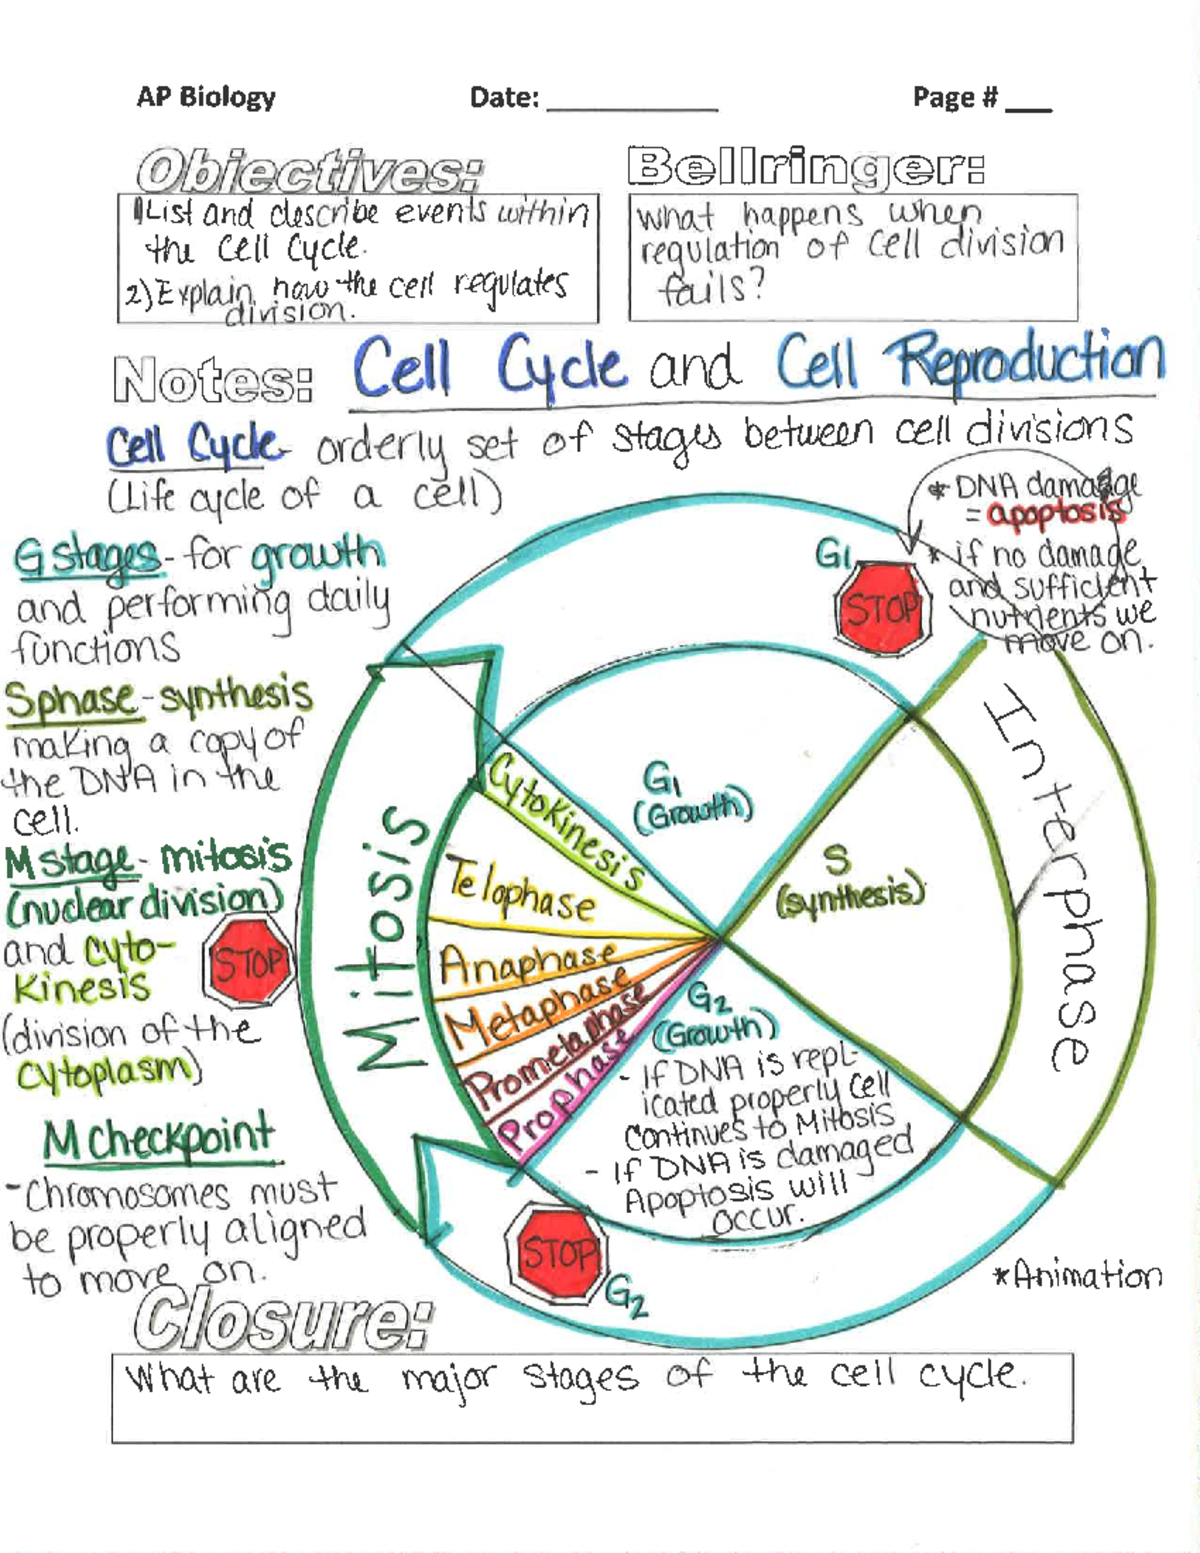 AP Biology Date: ____________ Page # ___
Objectives:
1) List and describe events within
the Cell Cycle.
2) Explain how the cell regulates
division.
Bellringer:
What happens when
regulation of cell division
fails?
Notes: Cell Cycle and Cell Reproduction
Cell Cycle - orderly set of stages between cell divisions
(Life cycle of a cell)
G stages - for growth
and performing daily
functions
S phase - synthesis
making a copy of
the DNA in the
cell.
M stage - mitosis
(nuclear division)
and cyto-
kinesis
(division of the
cytoplasm)
STOP
M checkpoint
- Chromosomes must
be properly aligned
to move on.
* DNA damage
= apoptosis
* if no damage
and sufficient
nutrients we
move on.
G1
STOP
Interphase
Mitosis
G1
(Growth)
S
(synthesis)
Cytokinesis
Telophase
Anaphase
Metaphase
Prometaphase
Prophase
G2
(Growth)
- If DNA is repl-
icated properly cell
continues to Mitosis
- If DNA is damaged
Apoptosis will
occur.
STOP
G2
*Animation
Closure:
What are the major stages of the cell cycle.